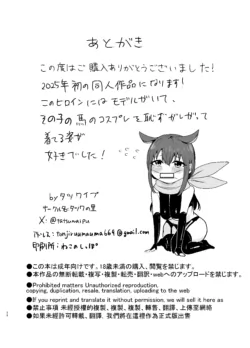 あとがき
この度はご購入ありがとうございました!
2025年初の同人作品になります!
このヒロインにはモデルがいて、
その子の馬のコスプレを恥ずがしがって
着てる姿が
好きでした!
byタツワイプ
サークル名:タツワの里
X:@tatsuwaipu
印刷所:ねこのしっぽ
●この本は成年向けです。18歳未満の購入、閲覧を禁じます。
●本作品の無断転載・複写・複製・転売・翻訳・webへのアップロードを禁じます。
●Prohibited matters Unauthorized reproduction,
copying, duplication, resale, translation, uploading to the web
●If you reprint and translate it without permission, we will sell it here as
●禁事項 未經同意禁止轉載, 複寫, 複製, 轉售, 翻譯, 上傳至網絡
●如果未經許可轉載, 翻譯, 我們將在這裡作為正式版出售